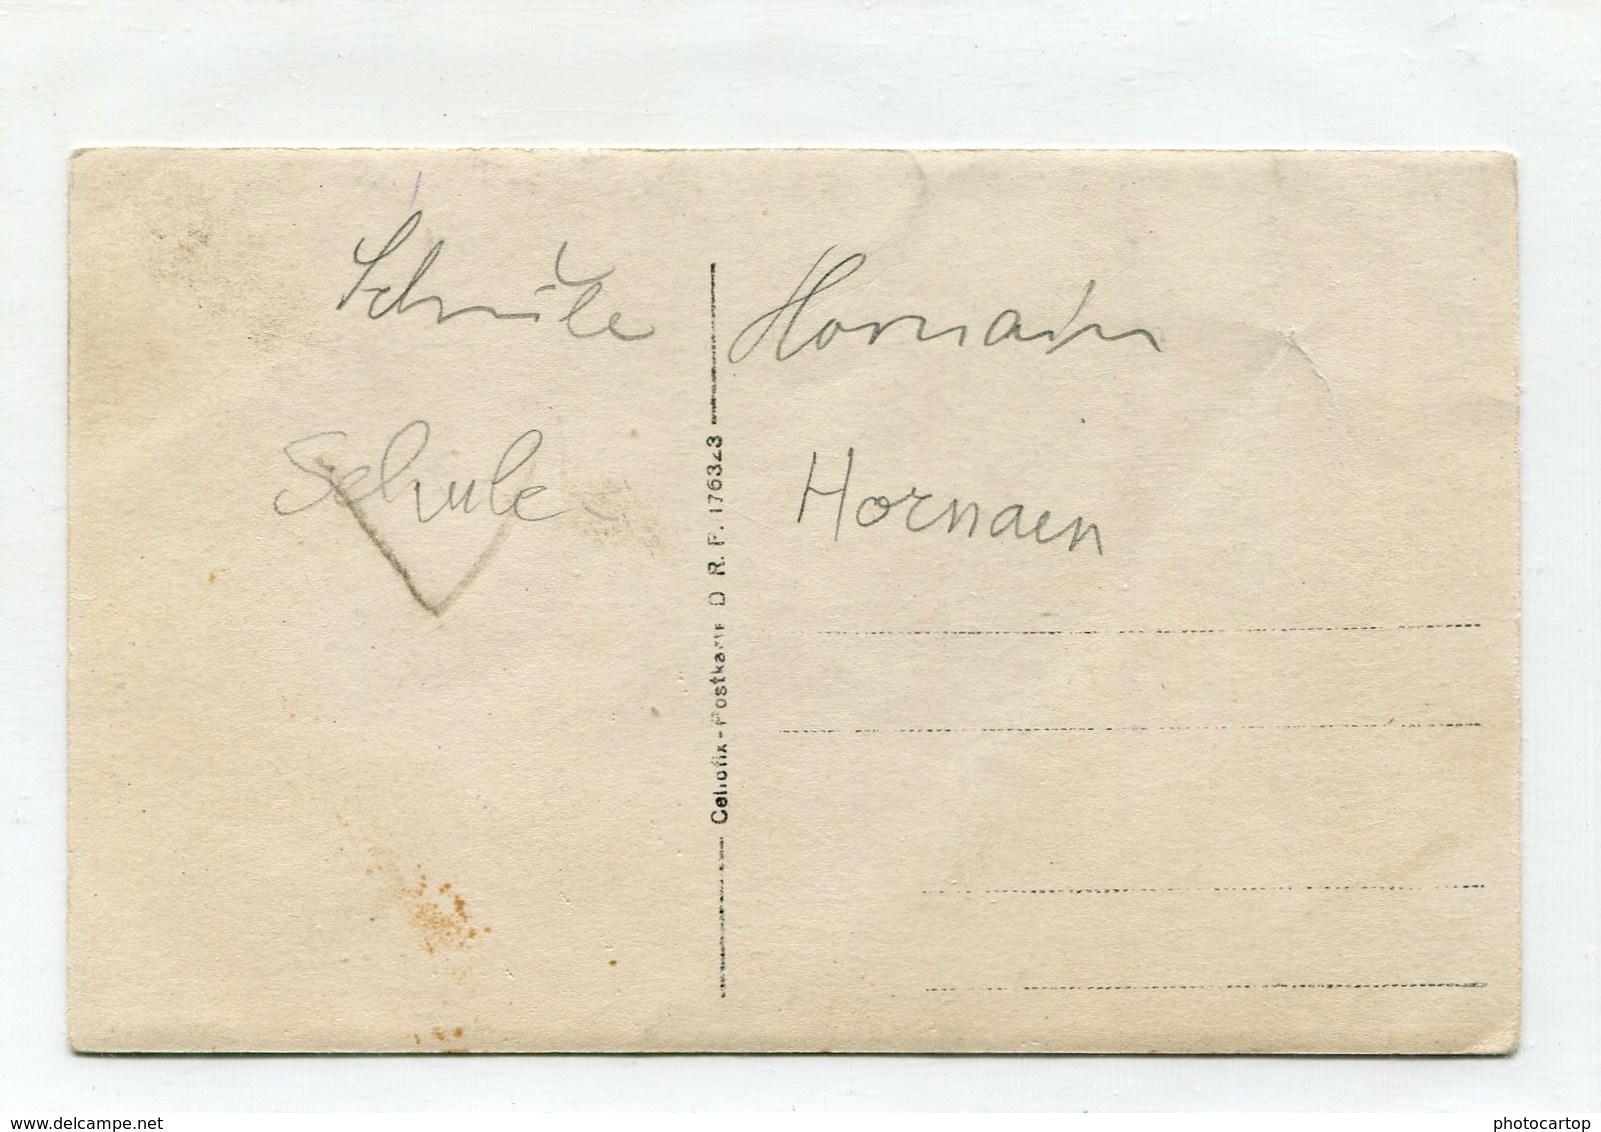 Schule Hornain
Schule Hornaen
Cellofix-Postkarte D. R. P. 176323
delcampe.net
photocartop